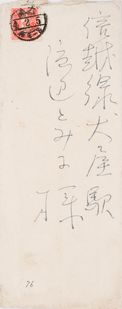 信越線大屋駅
渡辺とみ子
様
76